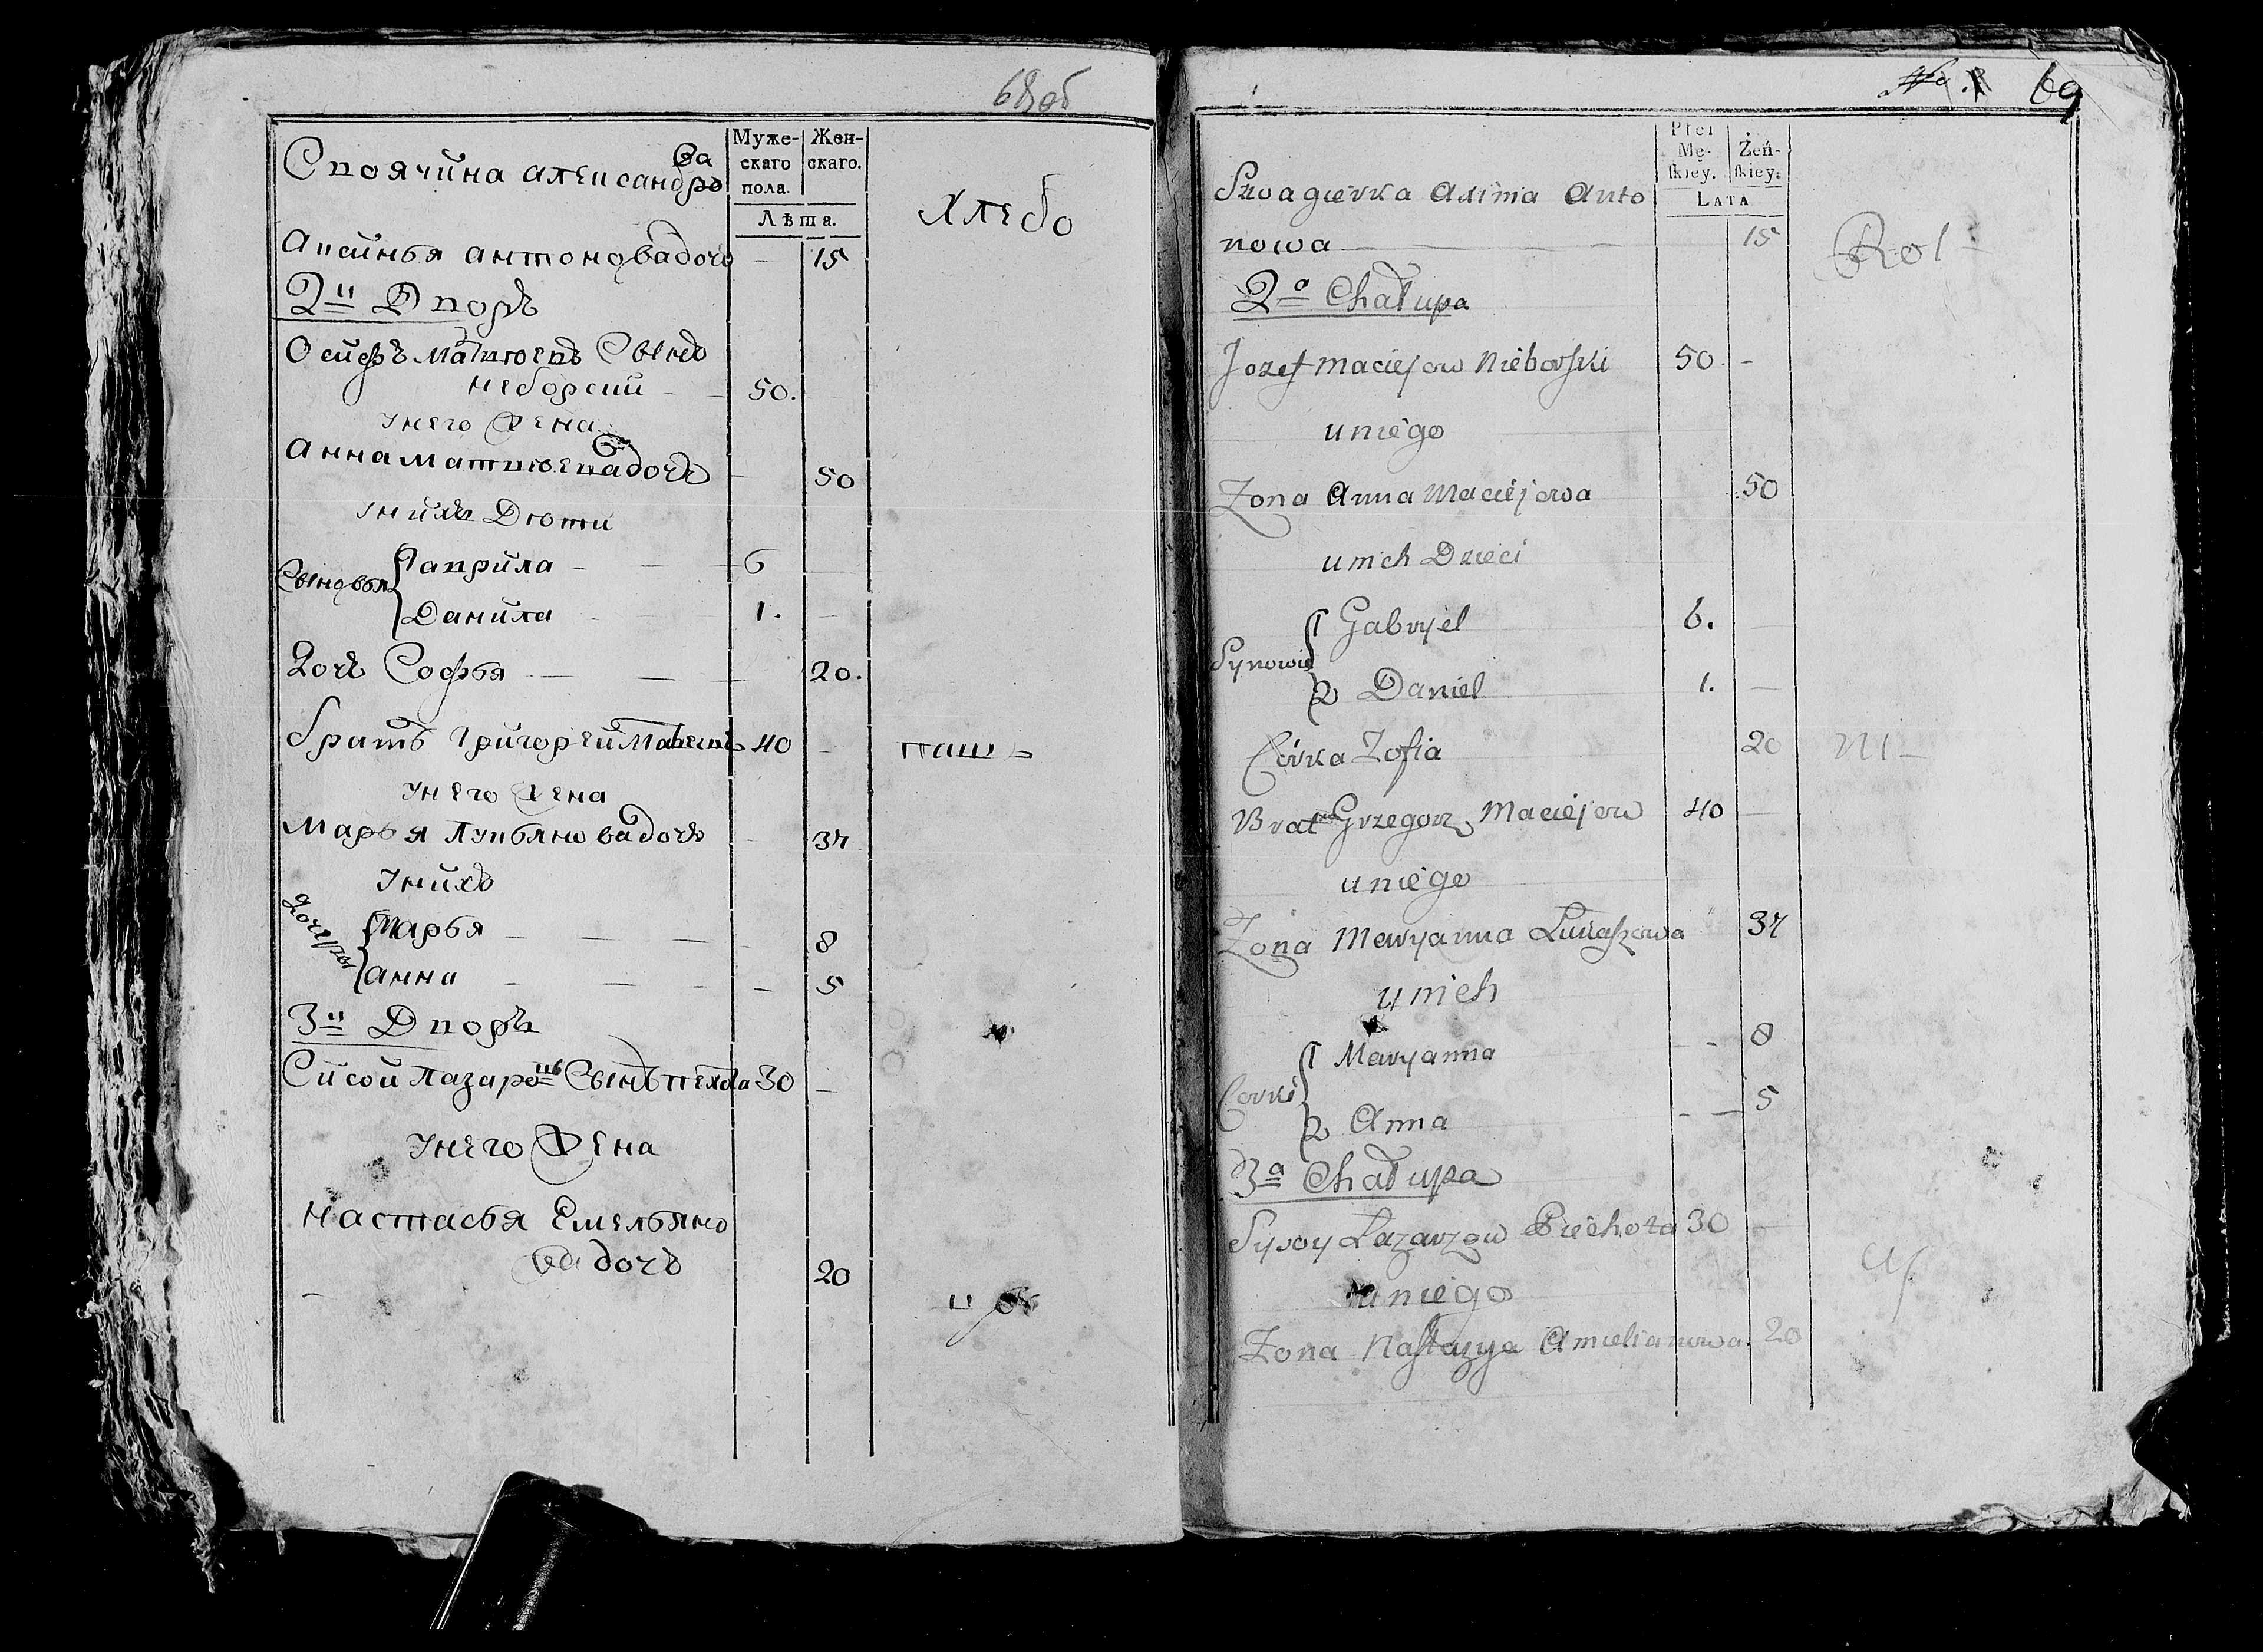 68 об
Муже- Жен-
скаго скаго.
пола.
Лѣта.
Споячина александрова
Хлебо
Аксинья антонова дочь — 15
2й Дворъ
Осифъ Матвѣевъ Сынъ
Неборский — 50.
У него Жена
Анна матвѣева дочь — 50
У нихъ Дѣти
Сыновья
Гаврила — 6
Данила — 1. —
Дочь Софья — 20.
братъ Григорей Матвеевъ 40 — паш
У него Жена
Марья Лукьянова дочь — 37
У нихъ
дочеры
Марья — 8
анна — 5
3й Дворъ
Сисой Лазаревъ Сынъ пехота 30 —
У него Жена
Настасья Емельяно
ва дочь 20
69
Płci
Mę- Żeń-
ſkiey. ſkiey.
LATA
Szwagierka Axima Anto
nowa — 15
Rol
2a Chałupa
Jozef Maciejow Nieborski 50. —
u niego
Zona Anna Maciejowa 50
u nich Dzieci
Synowie
1 Gabryel 6. —
2 Daniel 1. —
Córka Zofia 20 ni
Brat Grzegorz Maciejow 40 —
u niego
Zona Maryanna Łukaszowa 37
u nich
Corki
1 Maryanna — 8
2 Anna — 5
3a Chałupa
Sysoy Łazarzow Piechota 30 —
u niego
Zona Nastazya Amelianowa. 20